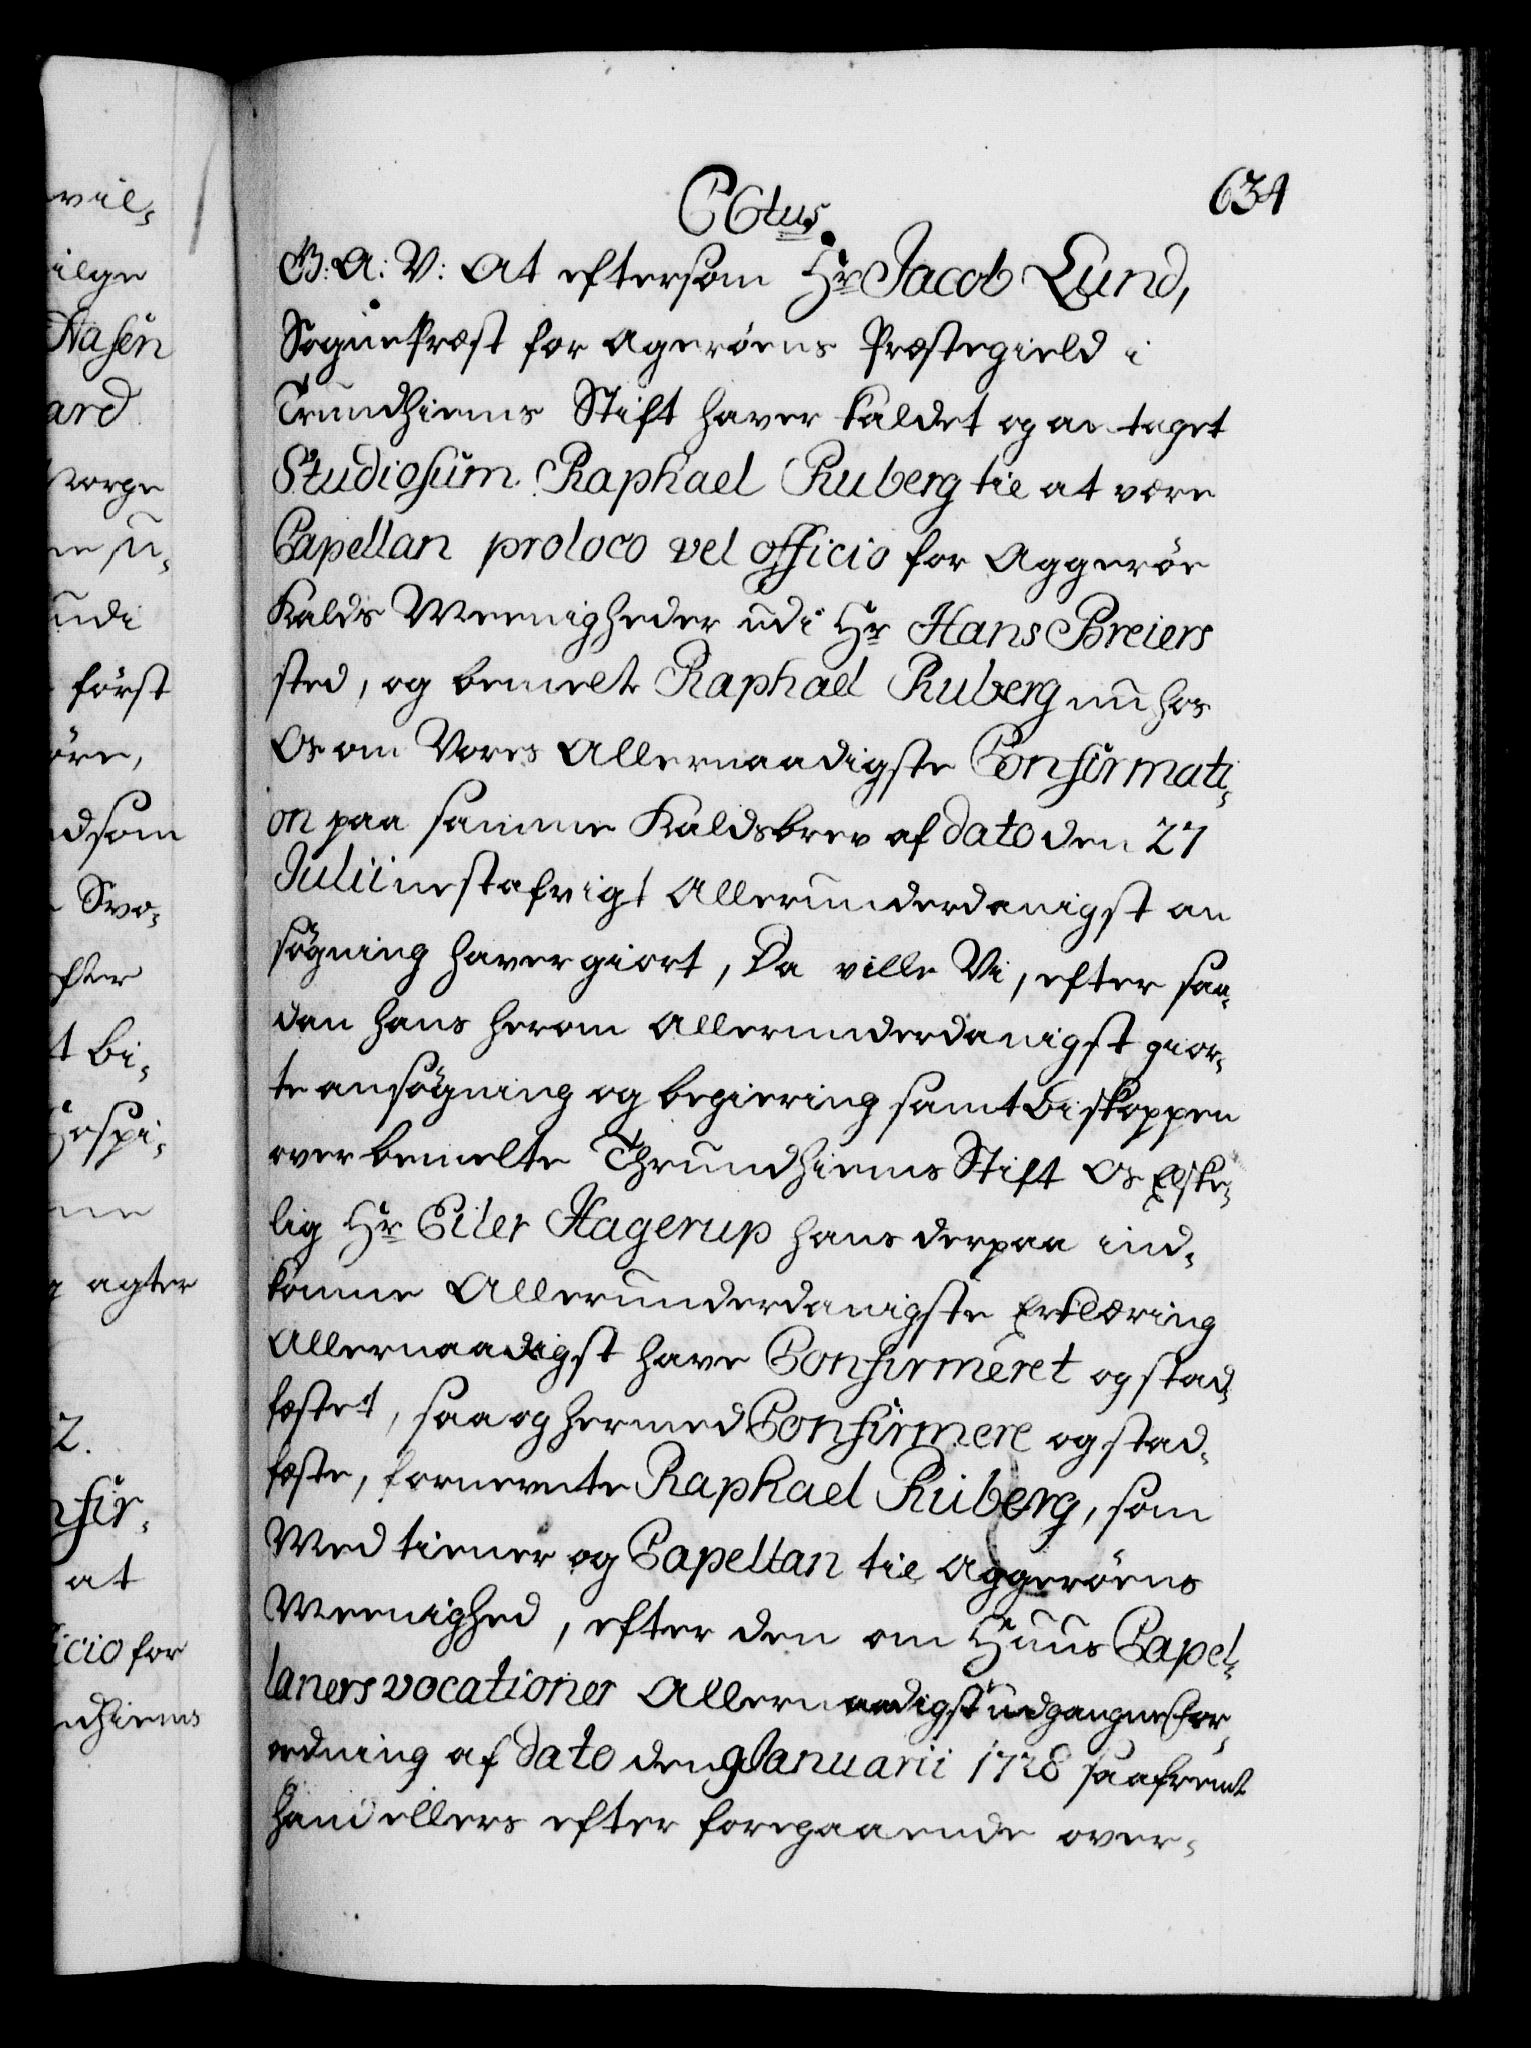 634
C6tus.
G: A: V: At eftersom Hr Jacob Lund,
SognePræst for Agerøens Præstegield i
Trundhiems Stift haver kaldet og antaget
Studiosum Raphael Ruberg til at være
Capellan pro loco vel officio for Aggerøe
Kalds Meenigheder udi Hr Hans Breiers
sted, og bemelte Raphael Ruberg nu hos
Os om Vores Allernaadigste Confirmati-
on paa samme Kaldsbrev af dato den 27
Julii nestafvigt Allerunderdanigst an
søgning haver giort, Da ville Vi, efter saa-
dan hans herom Allerunderdanigst gior-
te ansøgning og begiering samt Biskoppen
over bemelte Thrundhiems Stift Os Elske-
lig Hr Eiler Hagerup hans derpaa ind-
komne Allerunderdanigste Erklæring
Allernaadigst have Confirmeret og stad-
fæstet, saa og hermed Confirmere og stad-
fæste, fornevnte Raphael Ruberg, som
Medtiener og Capellan til Aggerøens
Meenighed, efter den om Huus Capel-
laners vocationer Allernaadigst udgangne For-
ordning af dato den 9 Januarii 1728 saafremt
hand ellers efter foregaaende over-
vil-
ilge
Hasen
ard
Norge
udi
først
øre,
dsom
Svo-
efter
t bi-
Hospi-
agter
2.
nfir-
at
icio for
ndhiems